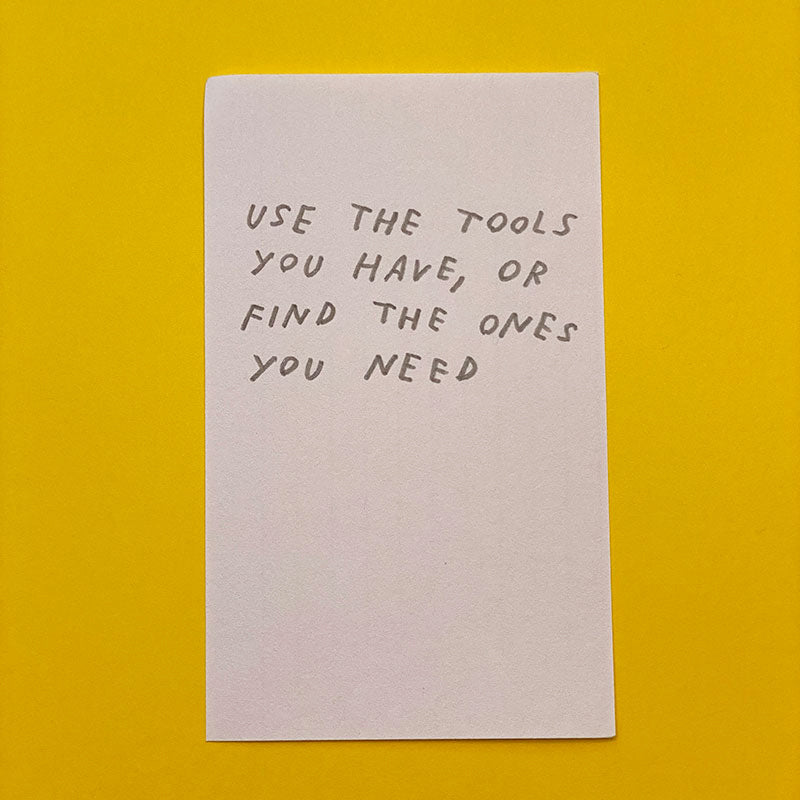 USE THE TOOLS
YOU HAVE, OR
FIND THE ONES
YOU NEED